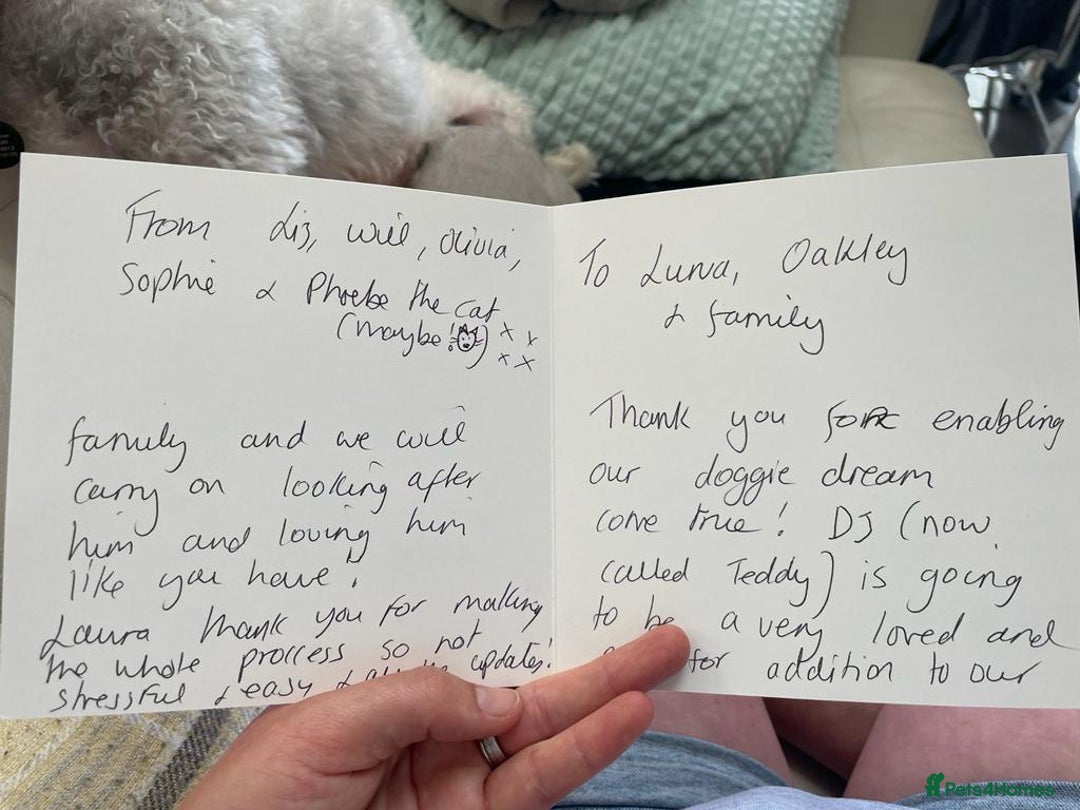 From Liz, Will, Olivia,
Sophie & Phoebe the cat
(maybe!) x x
x x
family and we will
carry on looking after
him and loving him
like you have!
Laura thank you for making
the whole process so not
stressful & easy & updates!
To Luna, Oakley
& family
Thank you for enabling
our doggie dream
come true! DJ (now
called Teddy) is going
to be a very loved and
for addition to our
Pets4Homes